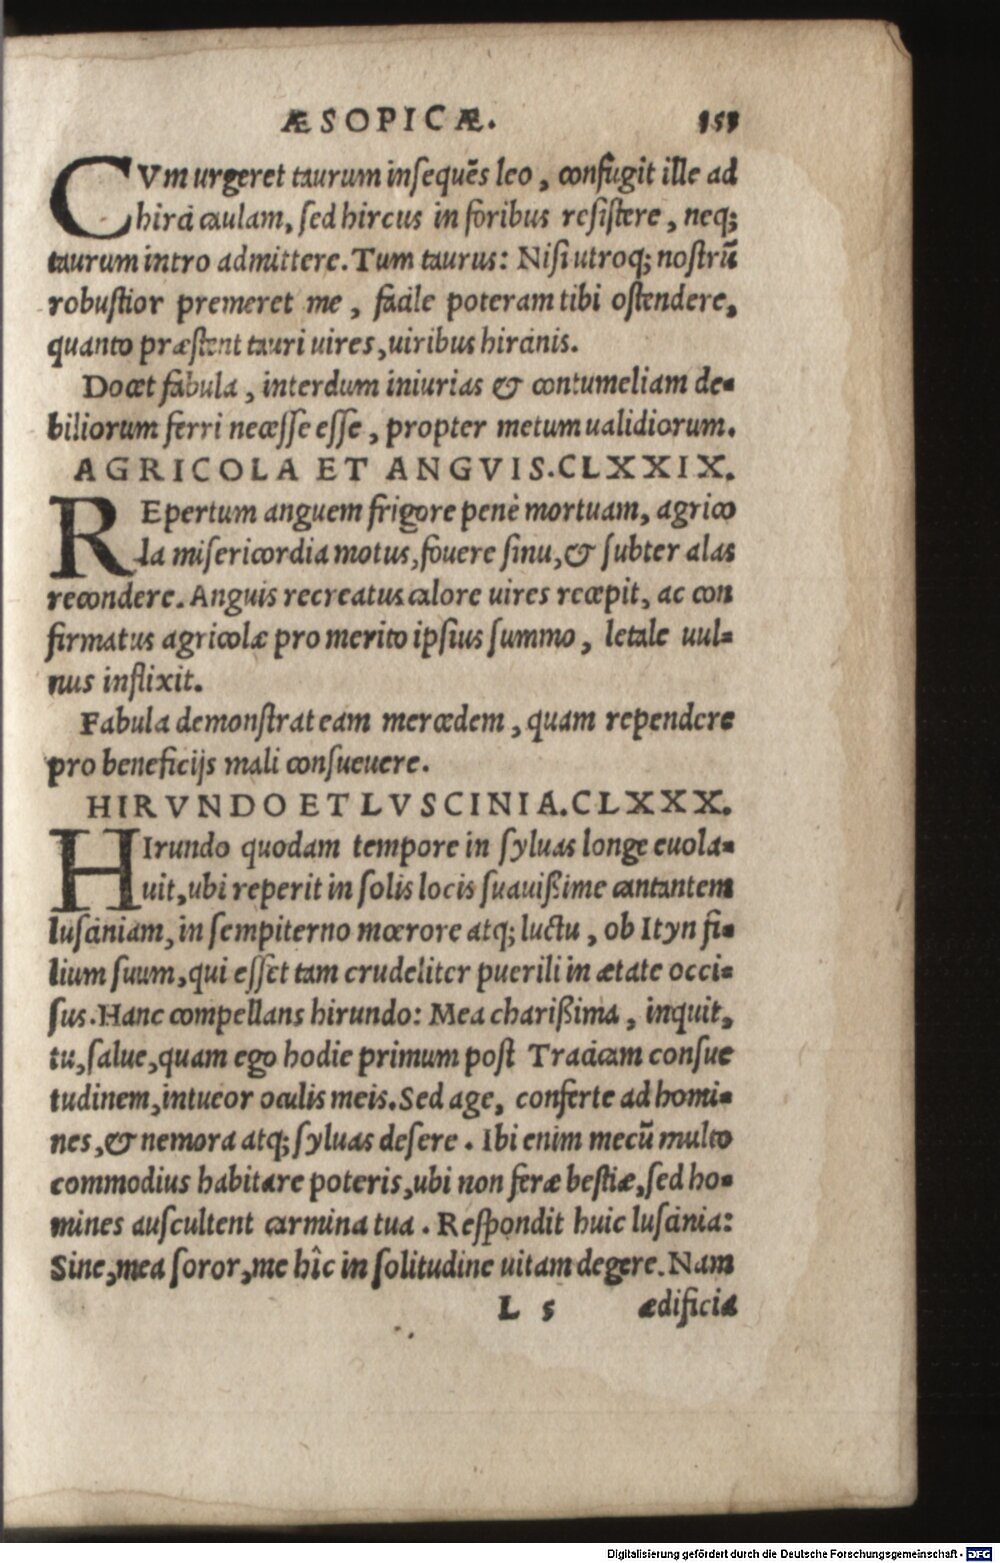 ÆSOPICÆ. 151
CVm urgeret taurum insequẽs leo, confûgit ille ad
hirci caulam, sed hircus in foribus resistere, neq;
taurum intro admittere. Tum taurus: Nisi utroq; nostrũ
robustior premeret me, facile poteram tibi ostendere,
quanto præstent tauri uires, uiribus hircinis.
Docet fabula, interdum iniurias & contumeliam de-
biliorum ferri necesse esse, propter metum ualidiorum.
AGRICOLA ET ANGVIS. CLXXIX.
REpertum anguem frigore penè mortuam, agrico
la misericordia motus, fouere sinu, & subter alas
recondere. Anguis recreatus calore uires recepit, ac con
firmatus agricolæ pro merito ipsius summo, letale uul-
nus inflixit.
Fabula demonstrat eam mercedem, quam rependere
pro beneficijs mali consueuere.
HIRVNDO ET LVSCINIA. CLXXX.
HIrundo quodam tempore in syluas longe euola-
uit, ubi reperit in solis locis suauißime cantantem
lusciniam, in sempiterno mœrore atq; luctu, ob Ityn fi-
lium suum, qui esset tam crudeliter puerili in ætate occi-
sus. Hanc compellans hirundo: Mea charißima, inquit,
tu, salue, quam ego hodie primum post Tracicam consue
tudinem, intueor oculis meis. Sed age, confer te ad homi-
nes, & nemora atq; syluas desere. Ibi enim mecũ multo
commodius habitare poteris, ubi non feræ bestiæ, sed ho-
mines auscultent carmina tua. Respondit huic luscinia:
Sine, mea soror, me hîc in solitudine uitam degere. Nam
L 5 ædificia
Digitalisierung gefördert durch die Deutsche Forschungsgemeinschaft - DFG